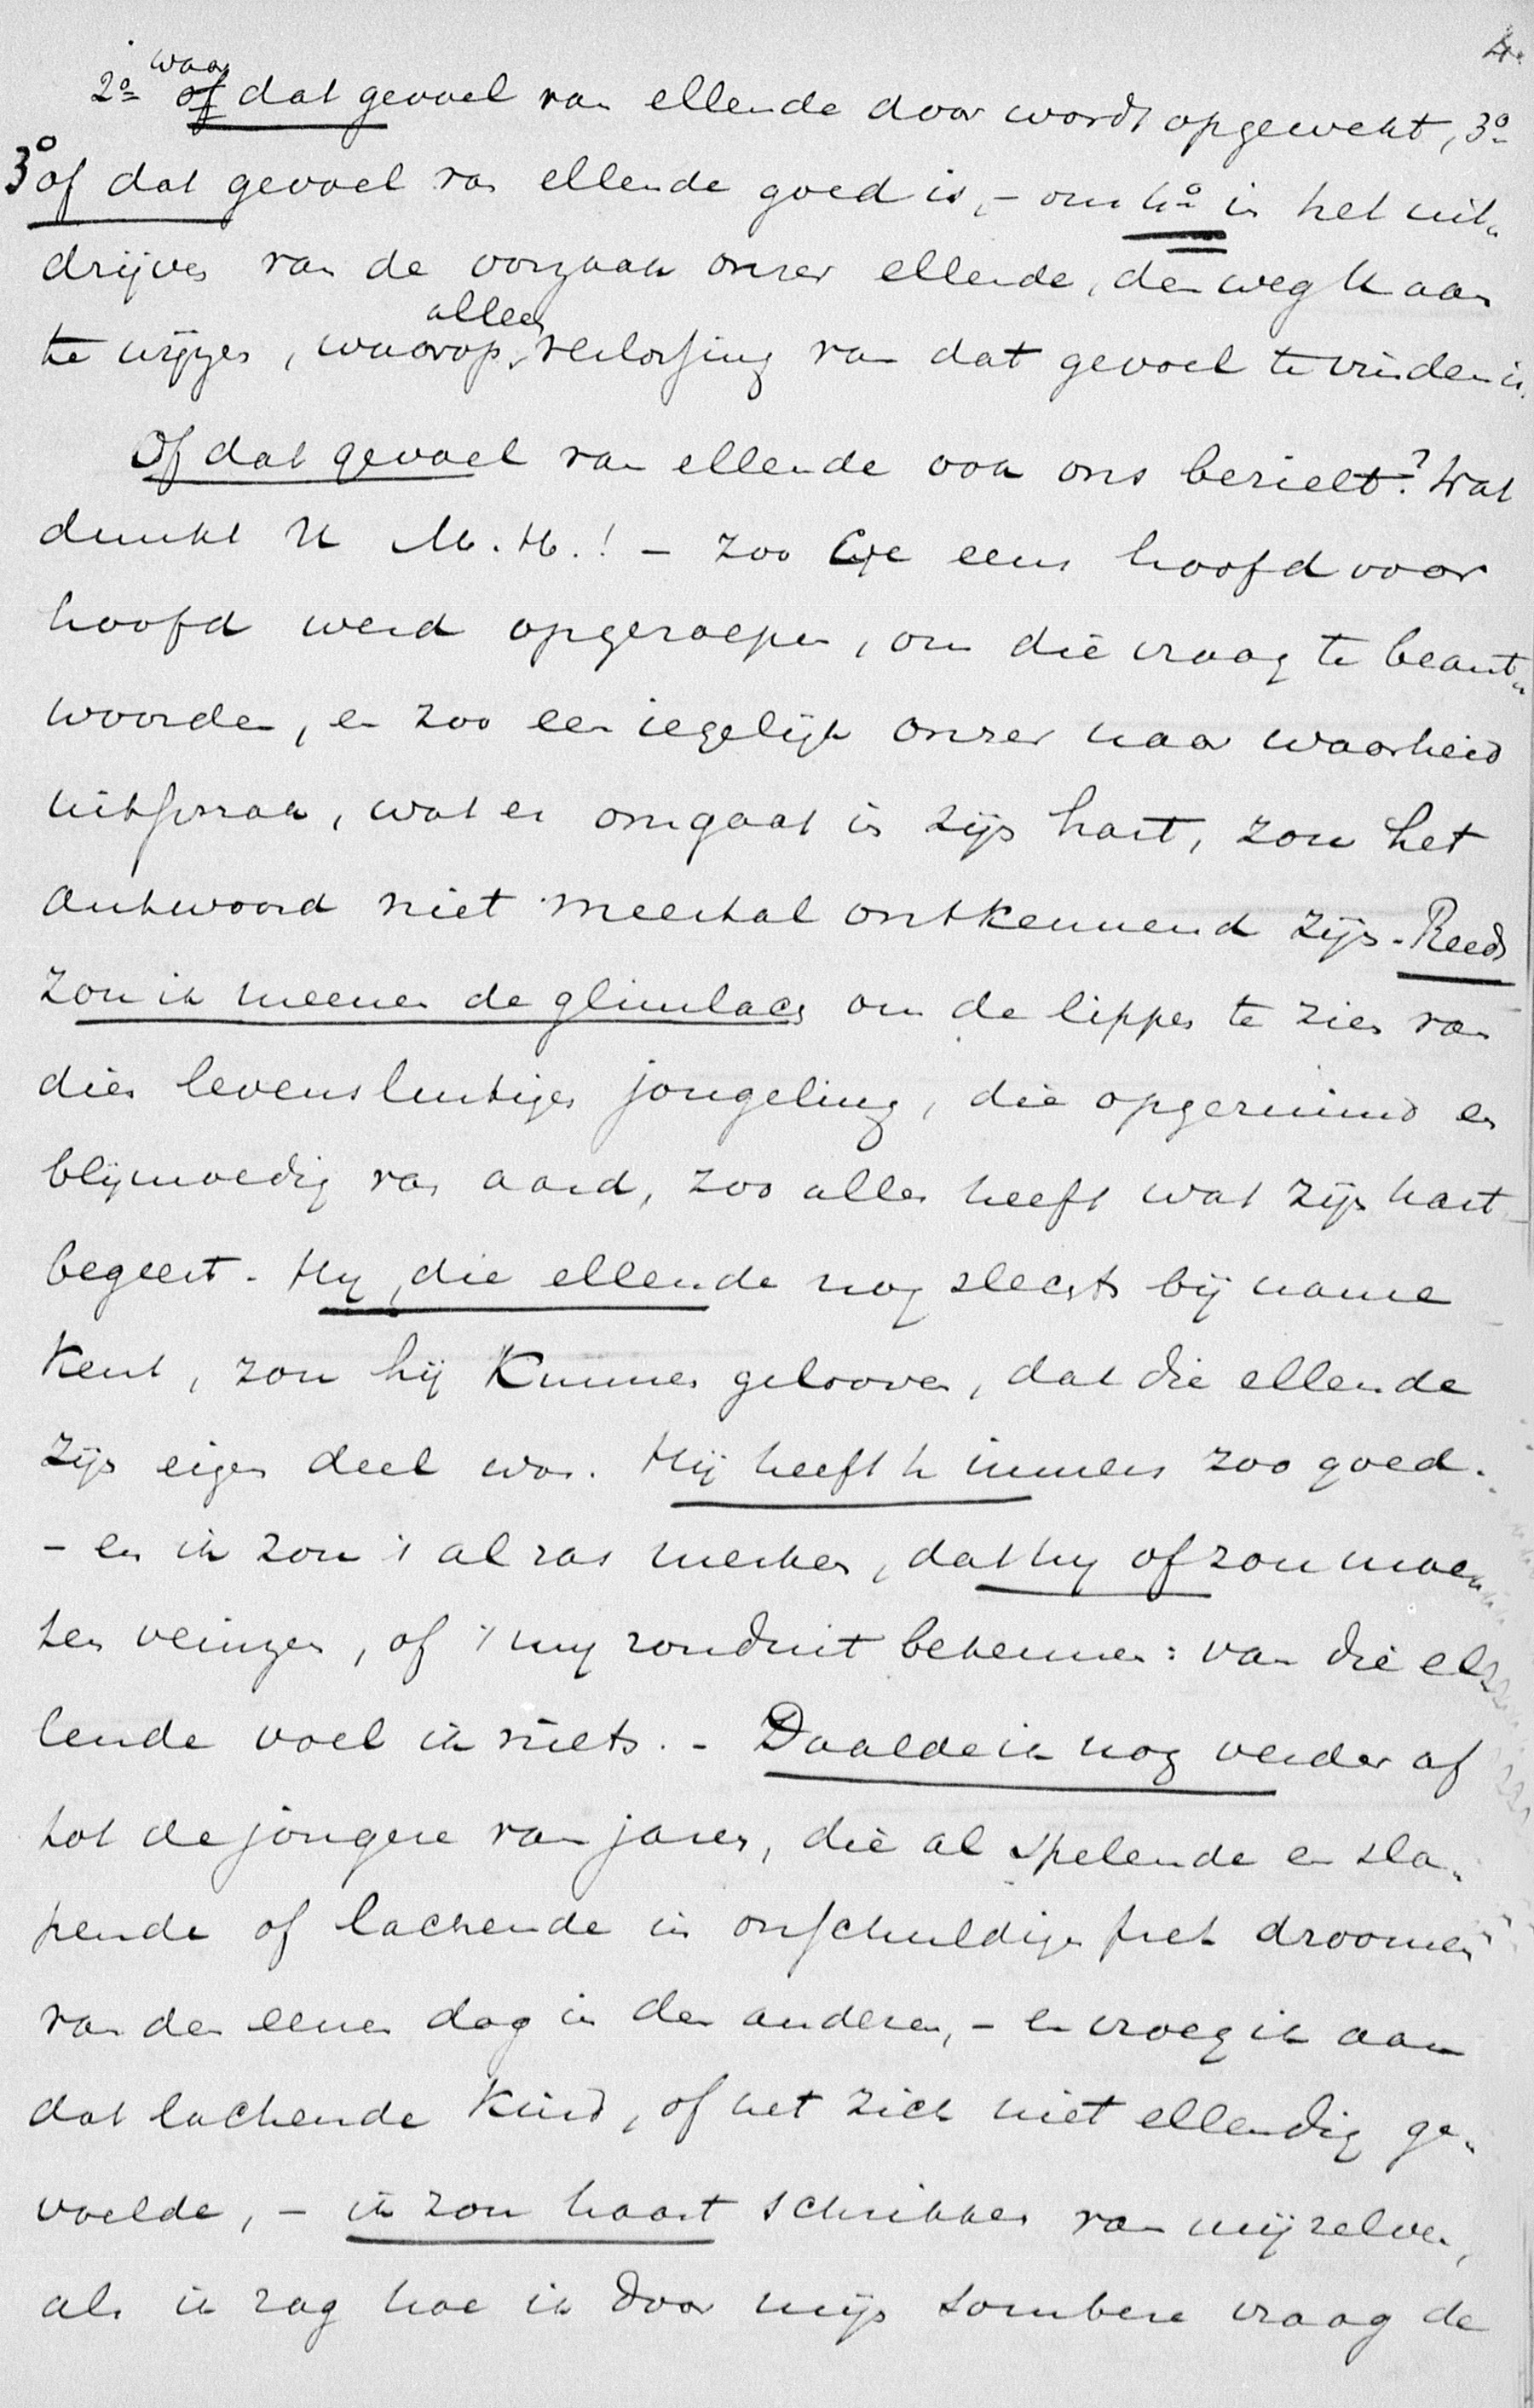 4.
waar
2º of dat gevoel van ellende door wordt opgewekt, 3º
3º of dat gevoel van ellende goed is, - om 4º in het uit„
drijven van de oorzaak onzer ellende, den weg U aan
alleen
te wijzen, waarop verlossing van dat gevoel te vinden is.
Of dat gevoel van ellende ook ons bezielt? Wat
dunkt U M. H.! - zoo Ge eens hoofd voor
hoofd werd opgeroepen, om die vraag te beant„
woorden, en zoo een iegelijk onzer naar waarheid
uitsprak, wat er omgaat in zijn hart, zou het
antwoord niet meestal ontkennend zijn. Reeds
zou ik meenen de glimlach om de lippen te zien van
dien levenslustigen jongeling, die opgeruimd en
blijmoedig van aard, zoo alles heeft wat zijn hart
begeert. Hij, die ellende nog slechts bij name
kent, zou hij kunnen gelooven, dat die ellende
zijn eigen deel was. Hij heeft 't immers zoo goed.
- en ik zou 't al ras merken, dat hij of zou moe„
ten veinzen, of 't mij ronduit bekennen: van die el„
lende voel ik niets. - Daalde ik nog verder af
tot de jongere van jaren, die al spelende en sla„
pende of lachende in onschuldige pret droomen
van den eenen dag in den anderen, - en vroeg ik aan
dat lachende kind, of het zich niet ellendig ge„
voelde, - ik zou haast schrikken van mijzelven,
als ik zag hoe ik door mijn sombere vraag de